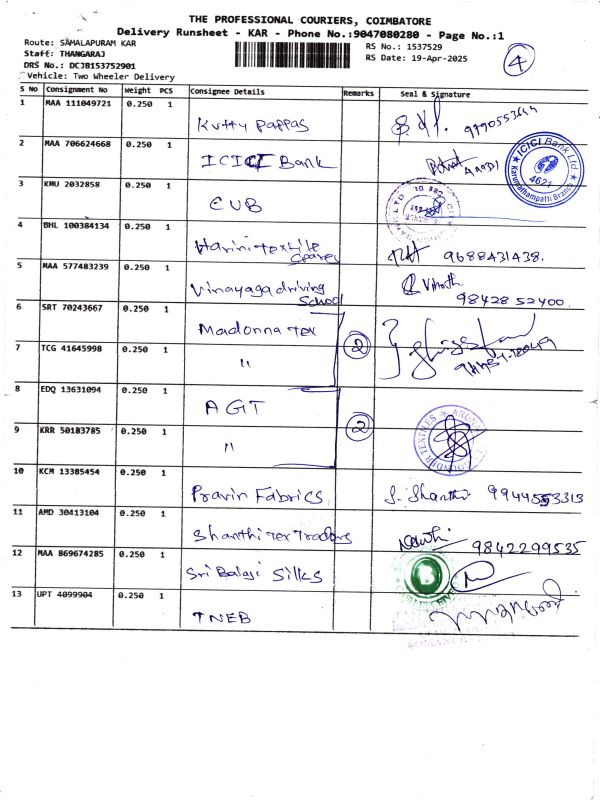 THE PROFESSIONAL COURIERS, COIMBATORE
Delivery Runsheet - KAR - Phone No.:9047080280 - Page No.:1
Route: SAMALAPURAM KAR
RS No.: 1537529
Staff: THANGARAJ
RS Date: 19-Apr-2025
DRS No.: DCJB153752901
4
Vehicle: Two Wheeler Delivery
S No Consignment No Weight PCS Consignee Details Remarks Seal & Signature
1 MAA 111049721 0.250 1 Kutty Pappas
2 MAA 706624668 0.250 1 ICICI Bank
ICICI Bank Ltd. 4621 Karumathampatti Branch
3 KMU 2032858 0.250 1 CUB
4 BHL 100384134 0.250 1 Harini Textile 9688431438.
5 MAA 577483239 0.250 1 Vinayaga driving School Vinoth 98428 52400.
6 SRT 70243667 0.250 1 Madonna Tex 2
7 TCG 41645998 0.250 1 "
8 EDQ 13631094 0.250 1 AGT 2
9 KRR 50183785 0.250 1 "
10 KCM 13385454 0.250 1 Pravin Fabrics S. Shanthi
11 AMD 30413104 0.250 1 Shanthi Tex Traders 9842299535
12 MAA 869674285 0.250 1 Sri Balaji Silks B
13 UPT 4099904 0.250 1 TNEB